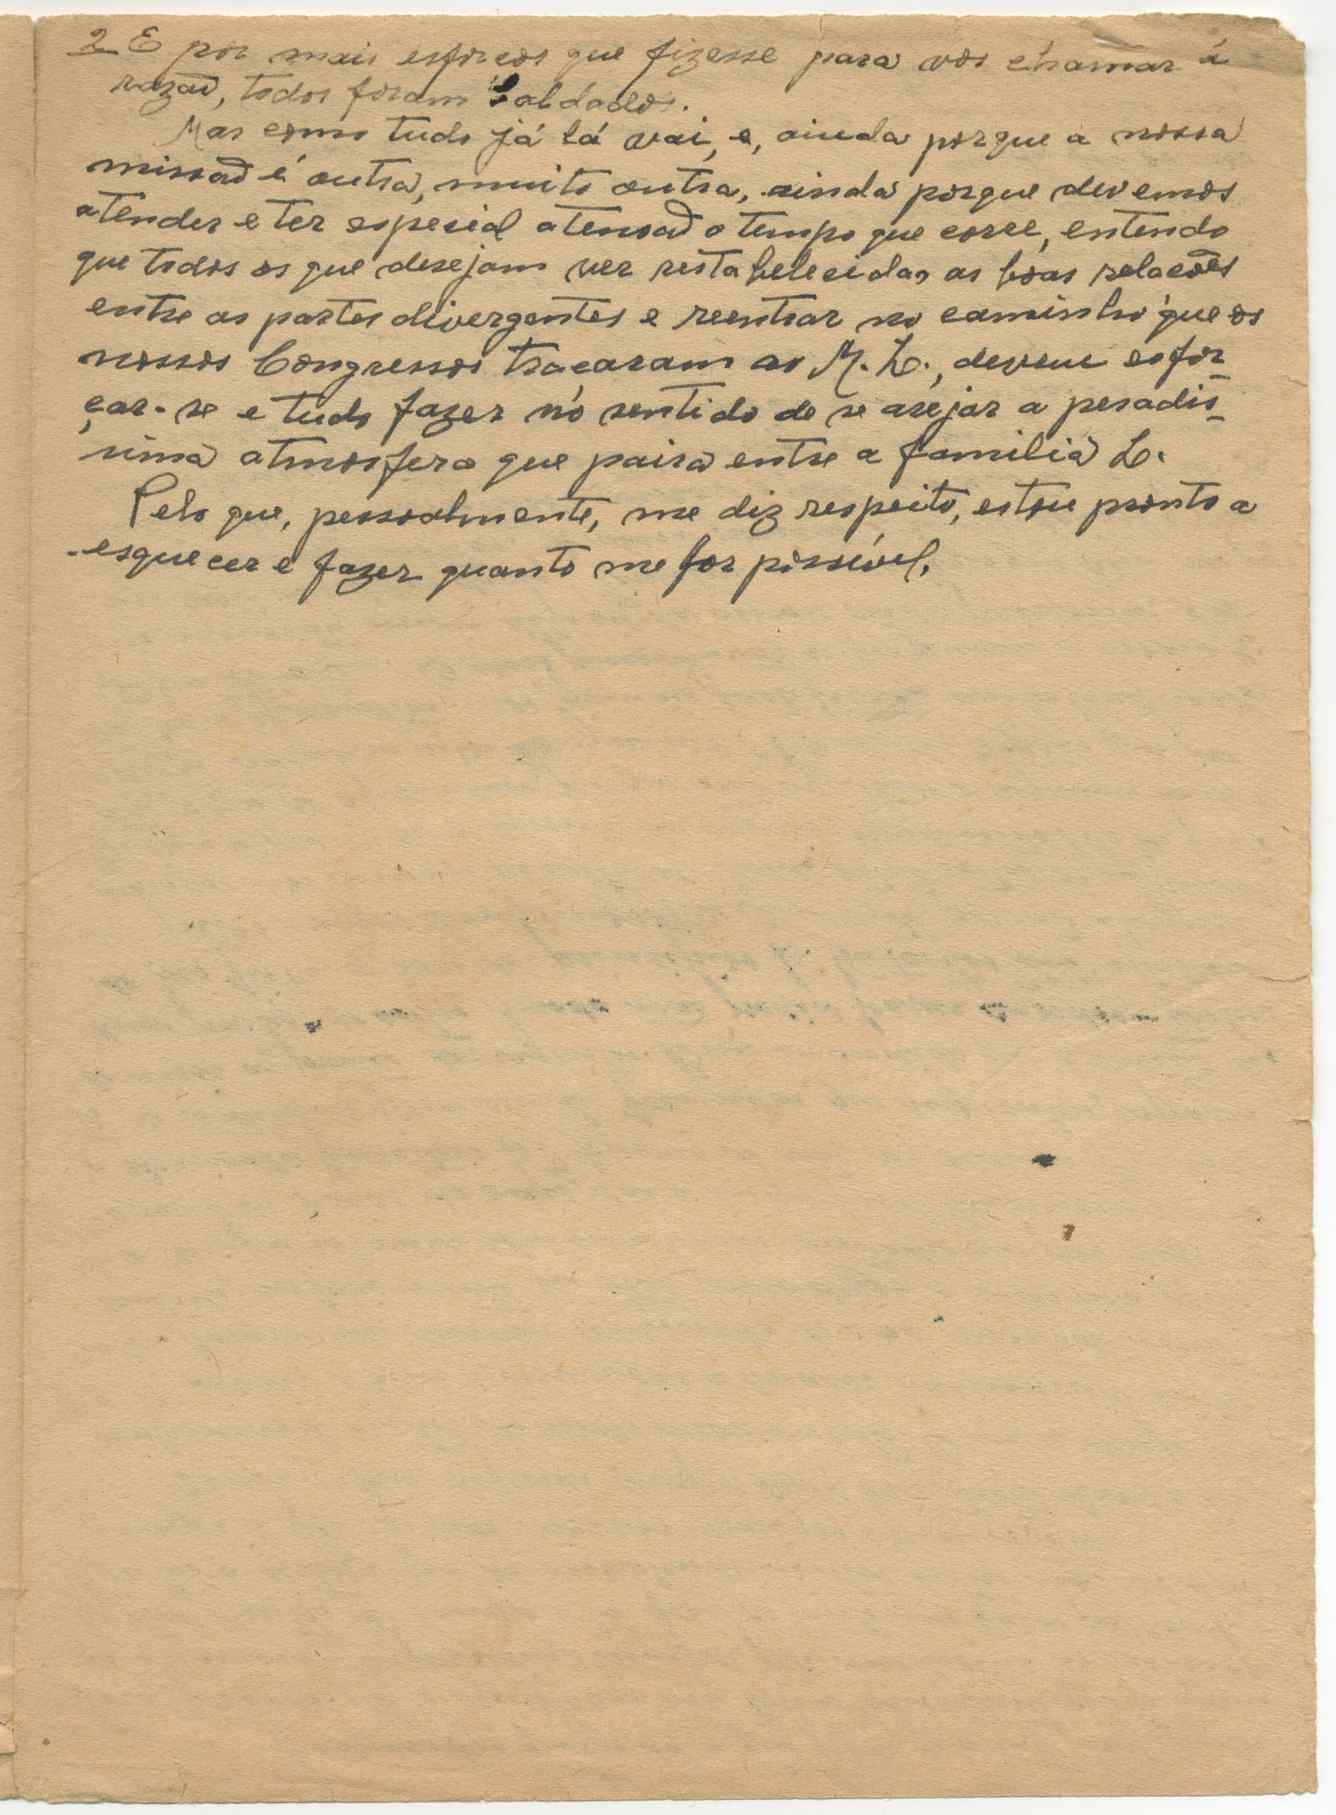 2 E por mais esforços que fizesse para vos chamar á
razaõ, todos foram baldados.
Mas como tudo já lá vai, e, ainda porque a nossa
missaõ é outra, muito outra, ainda porque devemos
atender e ter especial atensaõ o tempo que corre, entendo
que todos os que desejam ver restabelecidas as boas relações
entre as partes divergentes e reentrar no caminho que os
nossos Congressos traçaram ao M. L., devem esfor_
çar-se e tudo fazer no sentido de se arejar a pesadis_
sima atmosfera que paira entre a familia L.
Pelo que, pessoalmente, me diz respeito, estou pronto a
esquecer e fazer quanto me for possível.